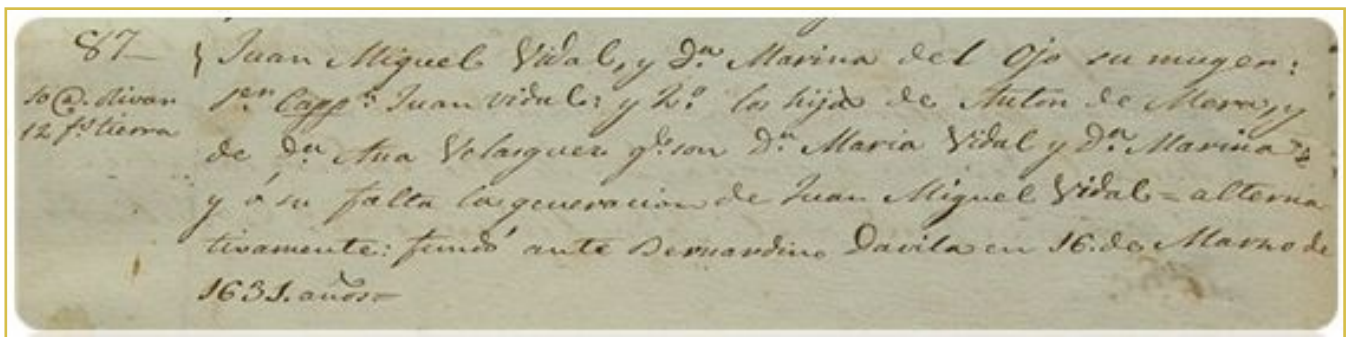 87_ } Juan Miguel Vidal, y Dª Marina del Ojo su muger:
10 @. olivar
12 fs tierra
1er Cappn Juan vidal: y 2º los hijos de Anton de Mora, y
de Dª Ana Velasquez qe son Dª Maria Vidal y Dª Marina =
y á su falta la generacion de Juan Miguel Vidal = alterna
tivamente: fundó ante Bernardino Davila en 16. de Marzo de
1631. años =